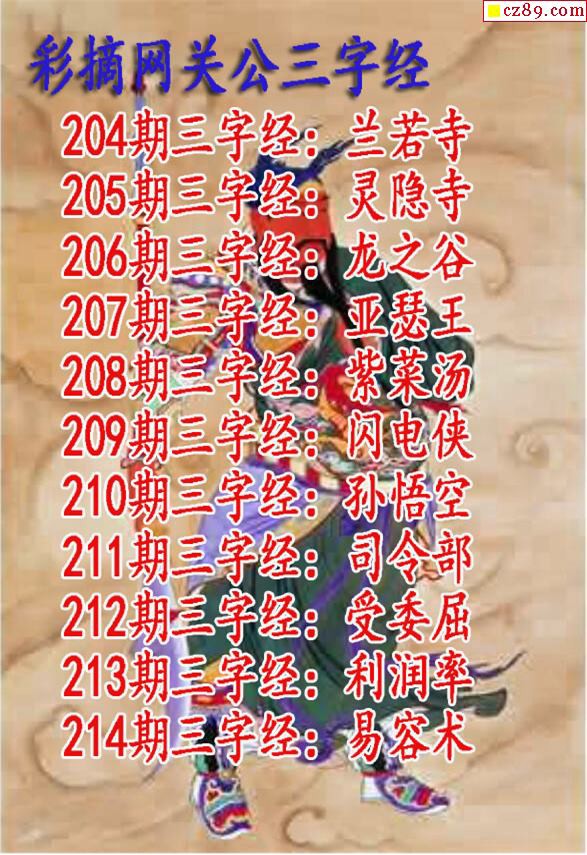 cz89.com
彩摘网关公三字经
204期三字经：兰若寺
205期三字经：灵隐寺
206期三字经：龙之谷
207期三字经：亚瑟王
208期三字经：紫菜汤
209期三字经：闪电侠
210期三字经：孙悟空
211期三字经：司令部
212期三字经：受委屈
213期三字经：利润率
214期三字经：易容术